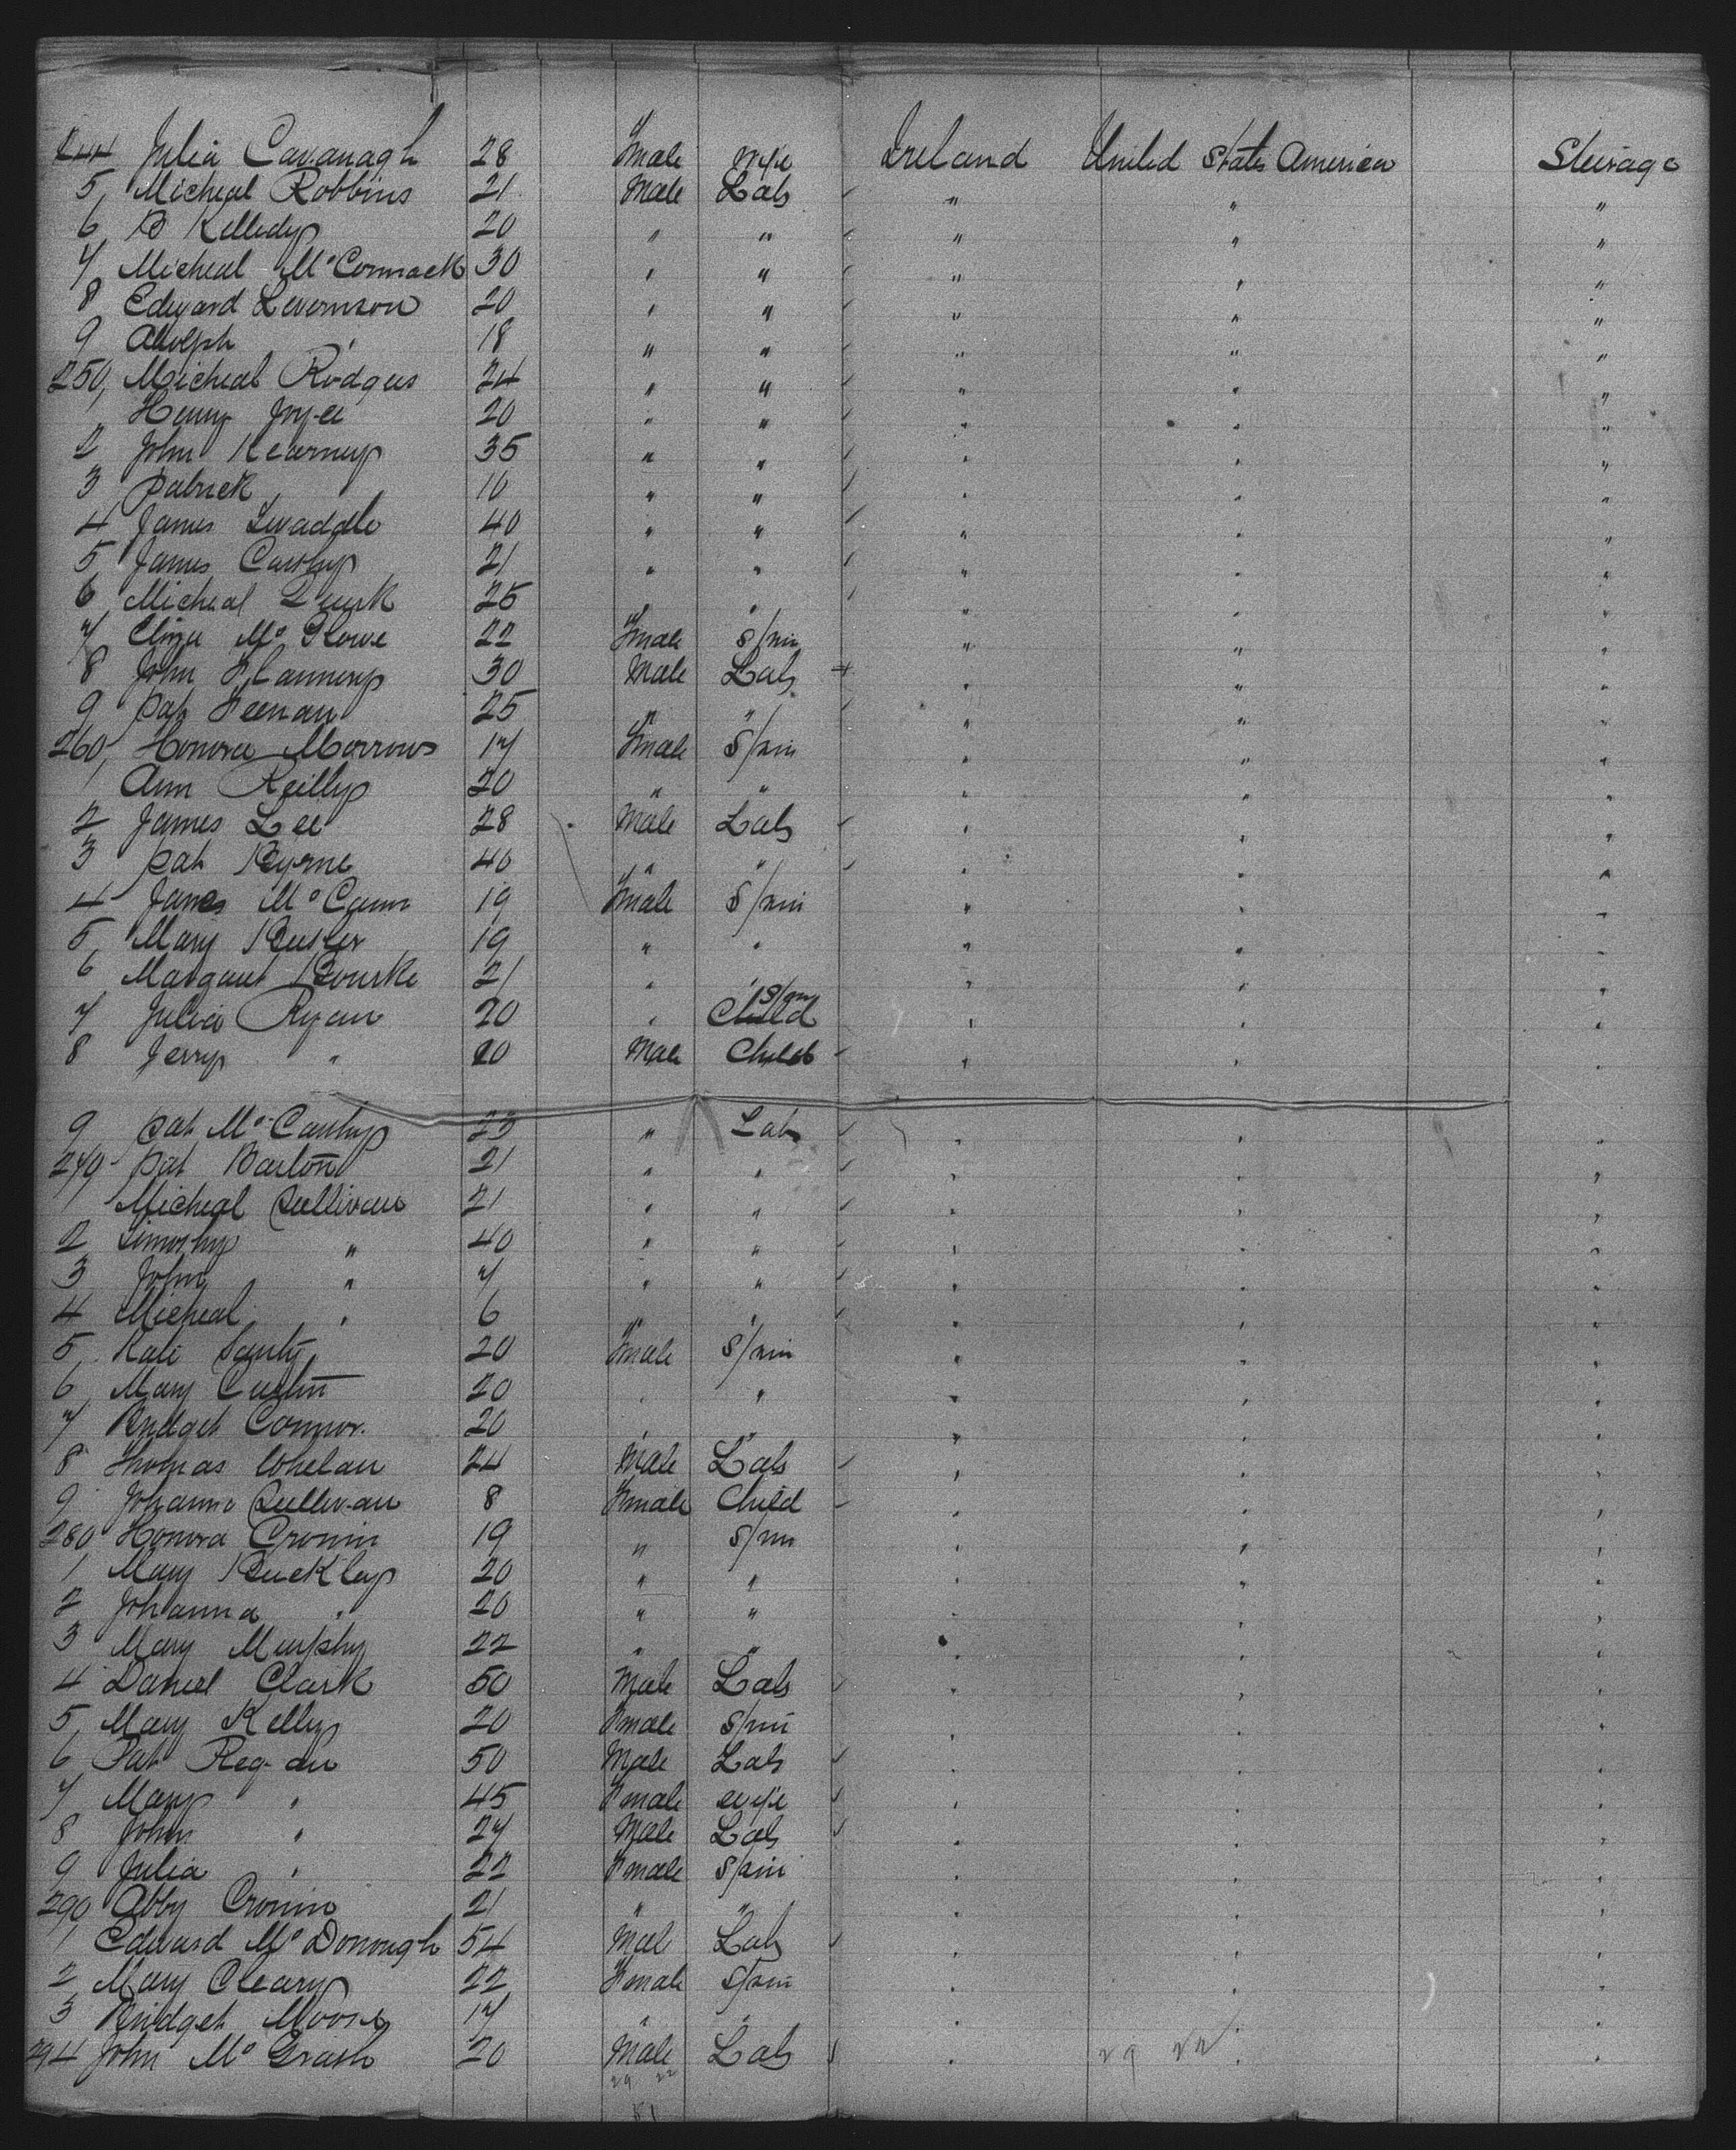 244 Julia Cavanagh 28 Fmale wife Ireland United States America Steerage
5, Micheal Robbins 21 Male Lab " " "
6 B Kelledy 20 " " " " "
7 Micheal McCormack 30 " " " " "
8 Edward Levernson 20 " " " " "
9 Adolph " 18 " " " " "
250, Micheal Rodgers 24 " " " " "
1 Henry Joyce 20 " " " " "
2 John Kearney 35 " " " " "
3 Patrick " 10 " " " " "
4 James Swaddle 40 " " " " "
5 James Carthy 21 " " " " "
6 Micheal Quirk 25 " " " " "
7 Eliza Mc 22 Fmale S/rin " " "
8 John Flannery 30 Male Lab " " "
9 Pat Keenan 25 " " " " "
260, Honora Morrows 17 Fmale S/rin " " "
1 Ann Reilly 20 " " " " "
2 James Lee 28 Male Lab " " "
3 Pat Byrne 40 " " " " "
4 James McCann 19 Fmale S/rin " " "
5, Mary 19 " " " " "
6 Margaret Bourke 21 " " " " "
7 Julia Ryan 20 " Child S/rin " " "
8 Jerry " 20 Male Child " " "
9 Pat McCarthy 23 " Lab " " "
270 Pat Barton 21 " " " " "
1 Micheal Sullivan 21 " " " " "
2 Timothy " 40 " " " " "
3 John " 7 " " " " "
4 Micheal " 6 " " " " "
5, Kate 20 Fmale S/rin " " "
6, Mary Curtin 20 " " " " "
7 Bridget Connor. 20 " " " " "
8 Thomas Whelan 24 Male Lab " " "
9 Johanna Sullivan 8 Fmale Child " " "
280 Honora Cronin 19 " S/rin " " "
1 Mary Buckley 20 " " " " "
2 Johanna " 20 " " " " "
3 Mary Murphy 22 " " " " "
4 Daniel Clark 50 Male Lab " " "
5, Mary Kelly 20 Fmale S/rin " " "
6 Pat Regan 50 Male Lab " " "
7 Mary " 45 Fmale wife " " "
8 John " 27 Male Lab " " "
9 Julia " 22 Fmale S/rin " " "
290 Abby Cronin 21 " " " " "
1 Edward McDonough 54 Male Lab " " "
2 Mary Cleary 22 Fmale S/rin " " "
3 Bridget Moore 17 " " " " "
294 John McGrath 20 Male Lab " " "
29 22 29 22
51